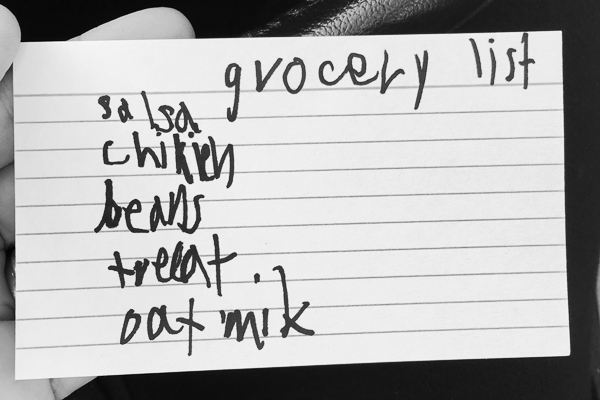 grocery list
salsa
chikien
beans
treeat.
oat milk